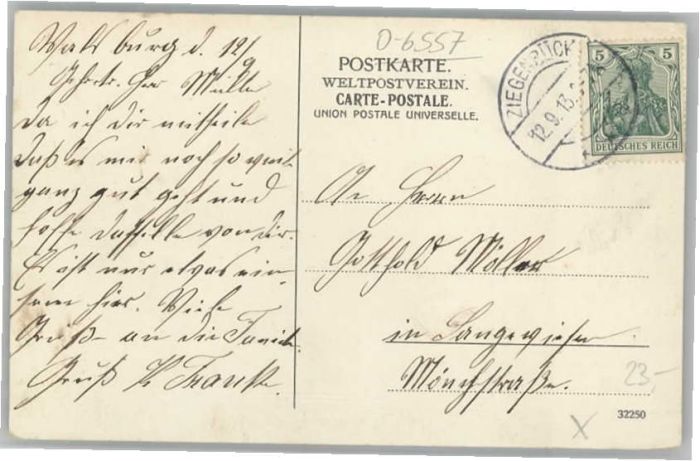 Walsburg d. 12/9
Geehrter Herr Müller
Da ich dir mitteile
daß es mir noch so weit
ganz gut geht und
hoffe dasselbe von dir.
Es ist nur etwas ein-
sam hier. Viele
Grüße an die Familie.
Gruß K. Frank
0-6557
POSTKARTE.
WELTPOSTVEREIN.
CARTE-POSTALE.
UNION POSTALE UNIVERSELLE.
ZIEGENRÜCK
12.9.13.
5 5
DEUTSCHES REICH
An Herrn
Gotthold Möller
in Langewiesen.
Mönchstraße.
23,-
32250
X